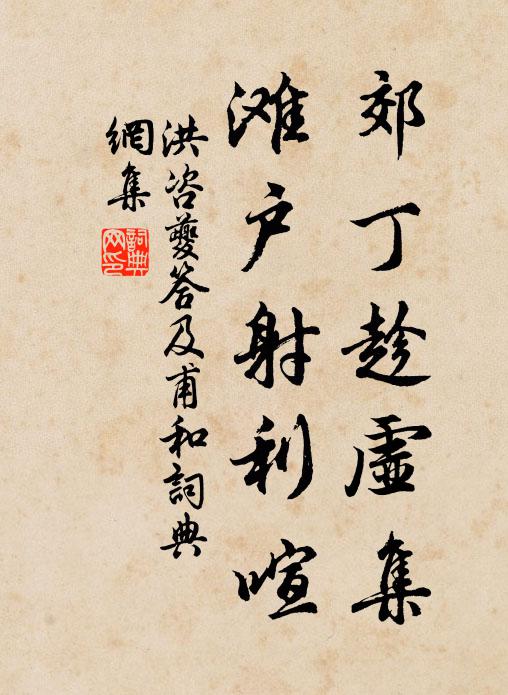 郊丁趁虛集
滩户射利喧
洪咨夔答及甫和詞典
網集
詞典
网印